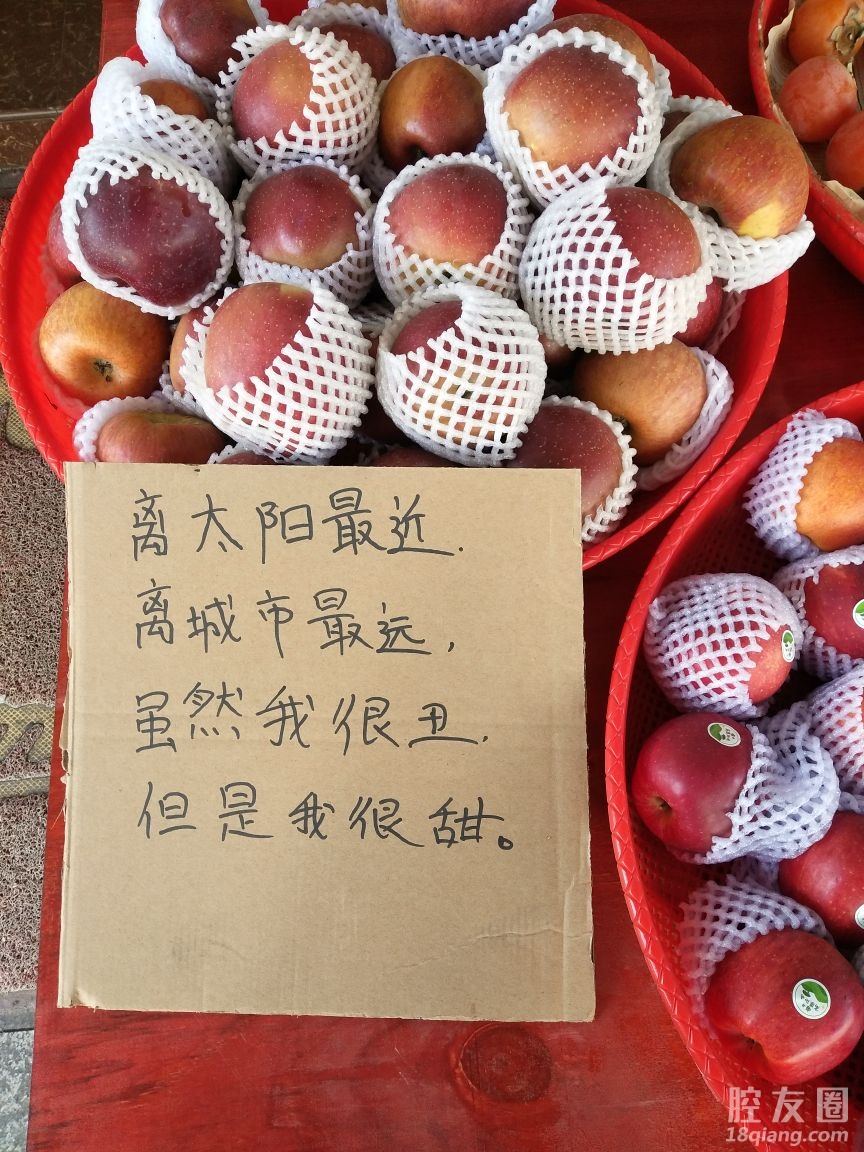 离太阳最近.
离城市最远,
虽然我很丑.
但是我很甜。
腔友圈
18qiang.com